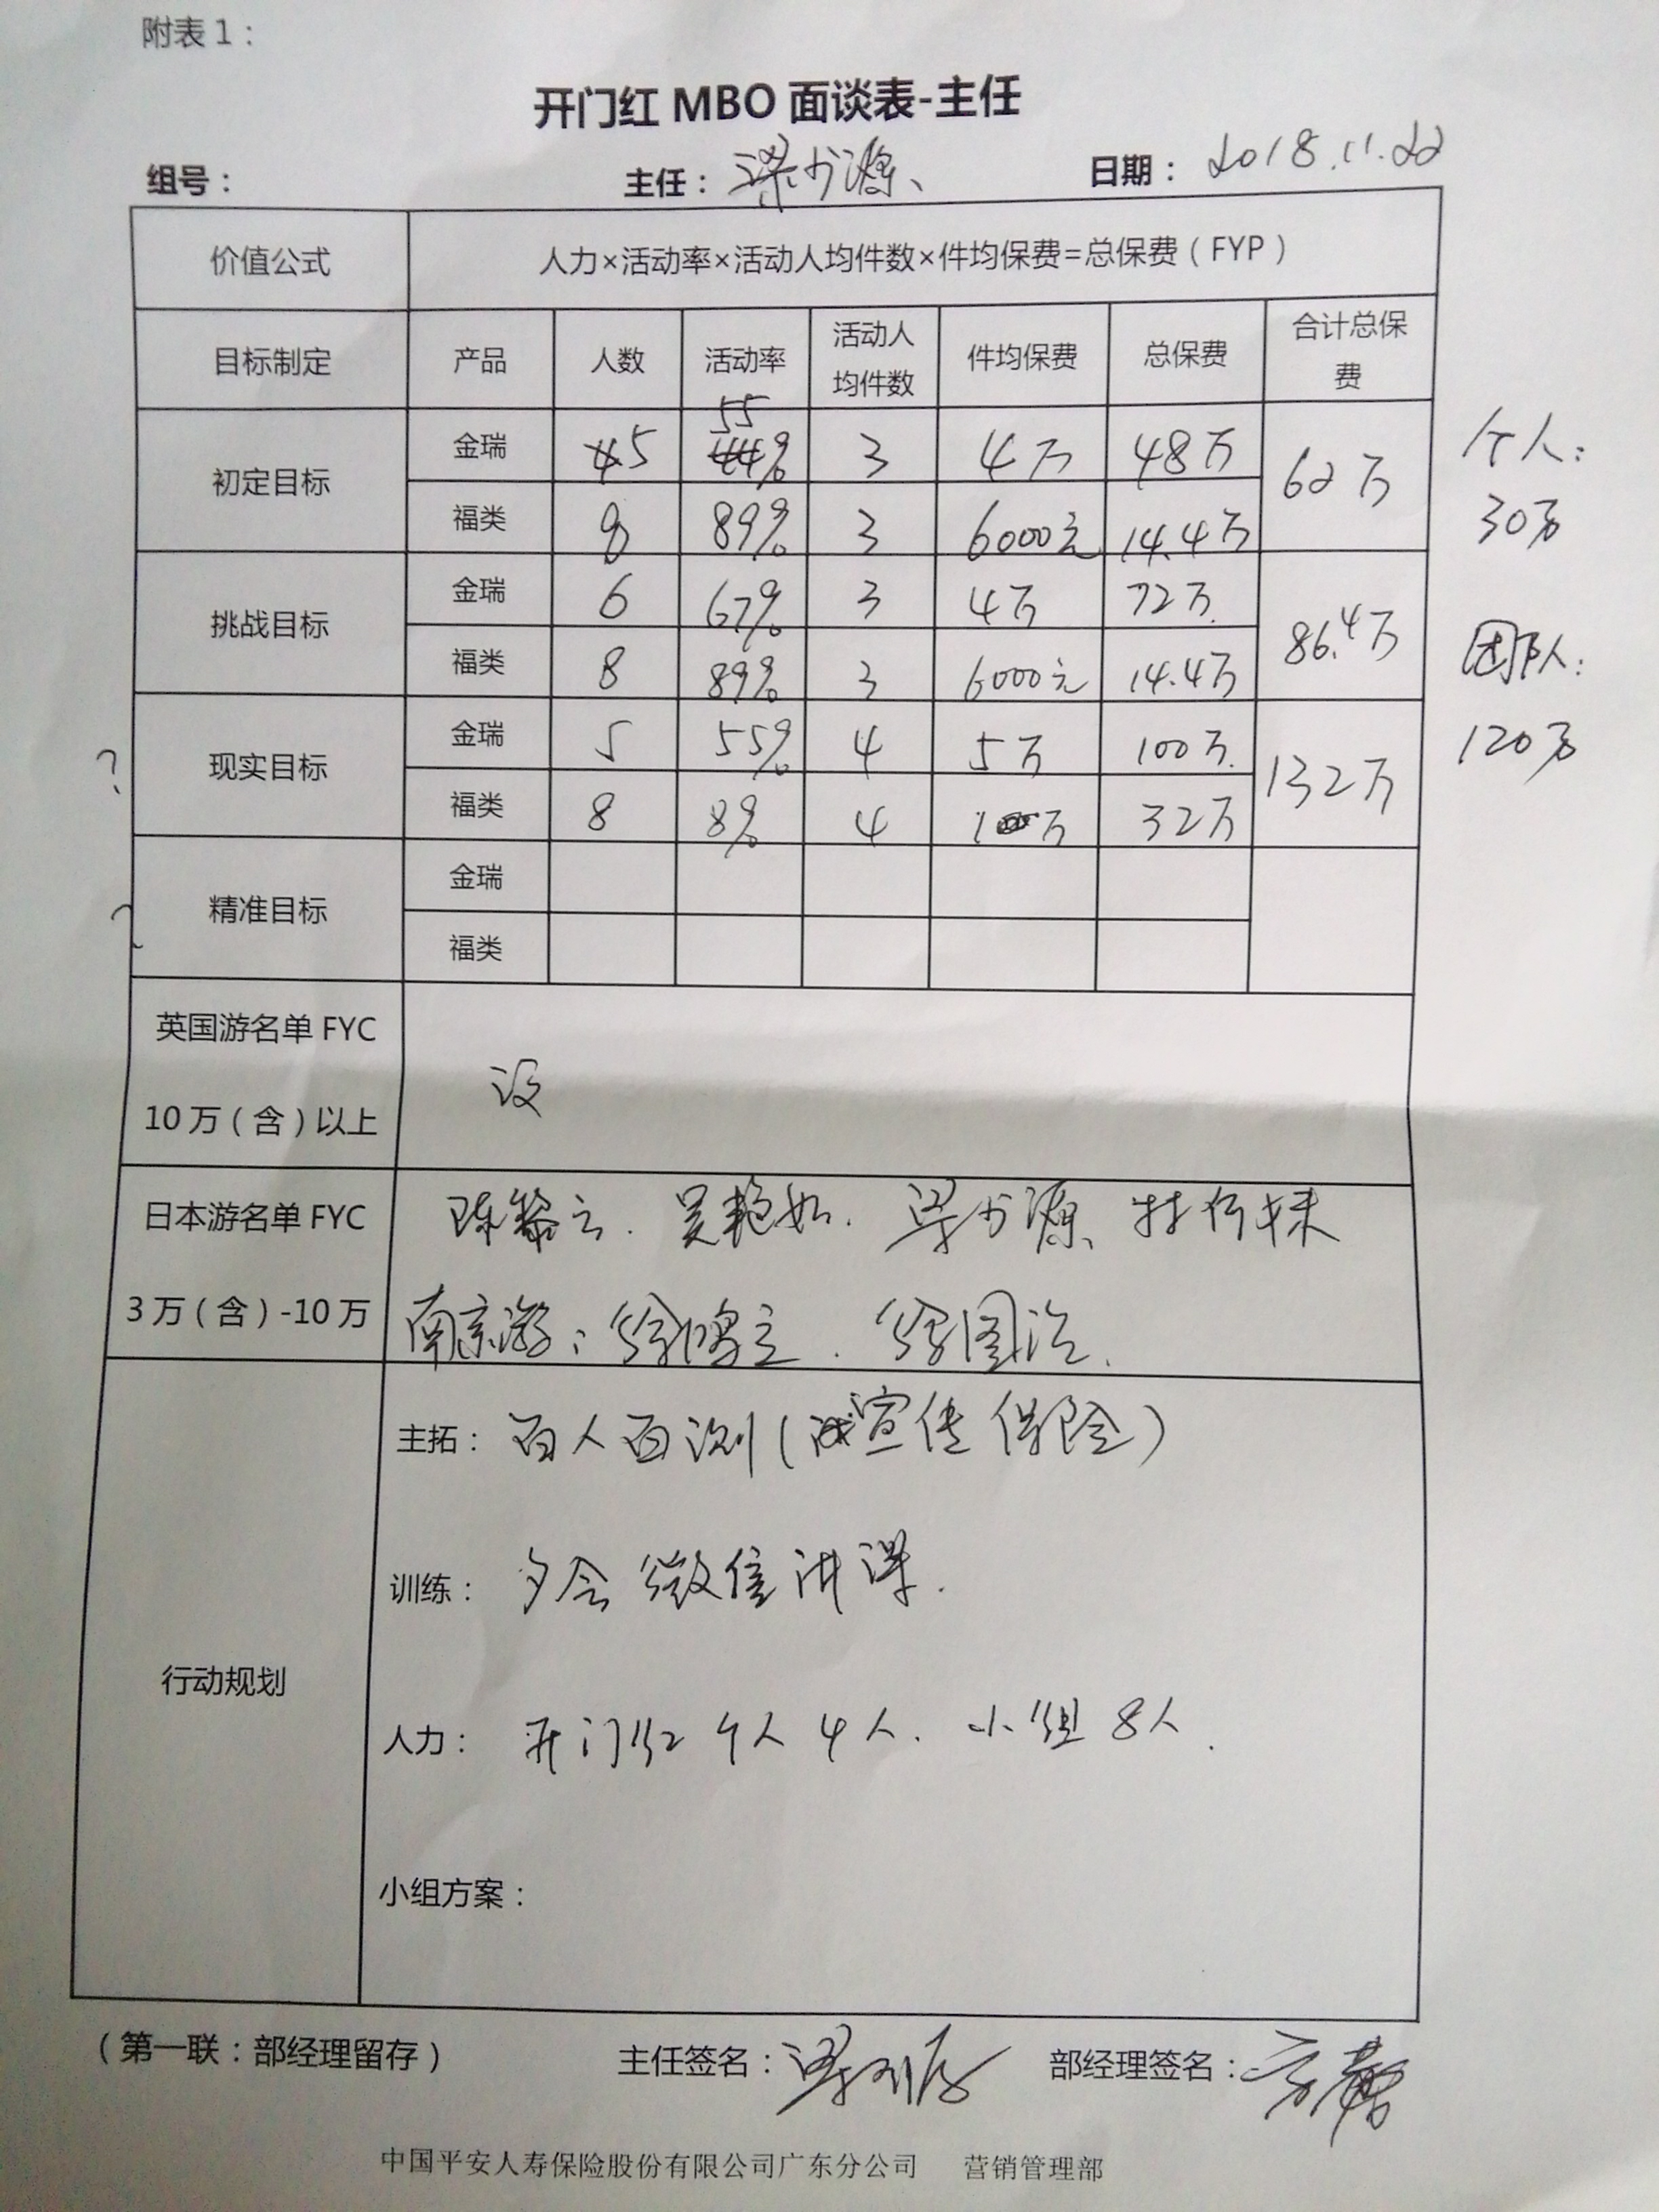 附表1：
开门红 MBO 面谈表-主任
组号： 主任：梁少源 日期：2018.11.22
价值公式 人力×活动率×活动人均件数×件均保费=总保费（FYP）
目标制定 产品 人数 活动率 活动人均件数 件均保费 总保费 合计总保费
初定目标 金瑞 5 55% 3 4万 48万 62万
福类 8 89% 3 6000元 14.4万
个人：
30万
挑战目标 金瑞 6 67% 3 4万 72万 86.4万
福类 8 89% 3 6000元 14.4万
团队：
120万
? 现实目标 金瑞 5 55% 4 5万 100万 132万
福类 8 8% 4 1万 32万
? 精准目标 金瑞
福类
英国游名单 FYC
10万（含）以上
没
日本游名单 FYC
3万（含）-10万
吴艳如. 梁少源、
南京游：
行动规划
主拓：百人百测（宣传保险）
训练：夕会 微信讲课.
人力：开门红 个人4人. 小组8人.
小组方案：
（第一联：部经理留存） 主任签名： 部经理签名：
中国平安人寿保险股份有限公司广东分公司 营销管理部